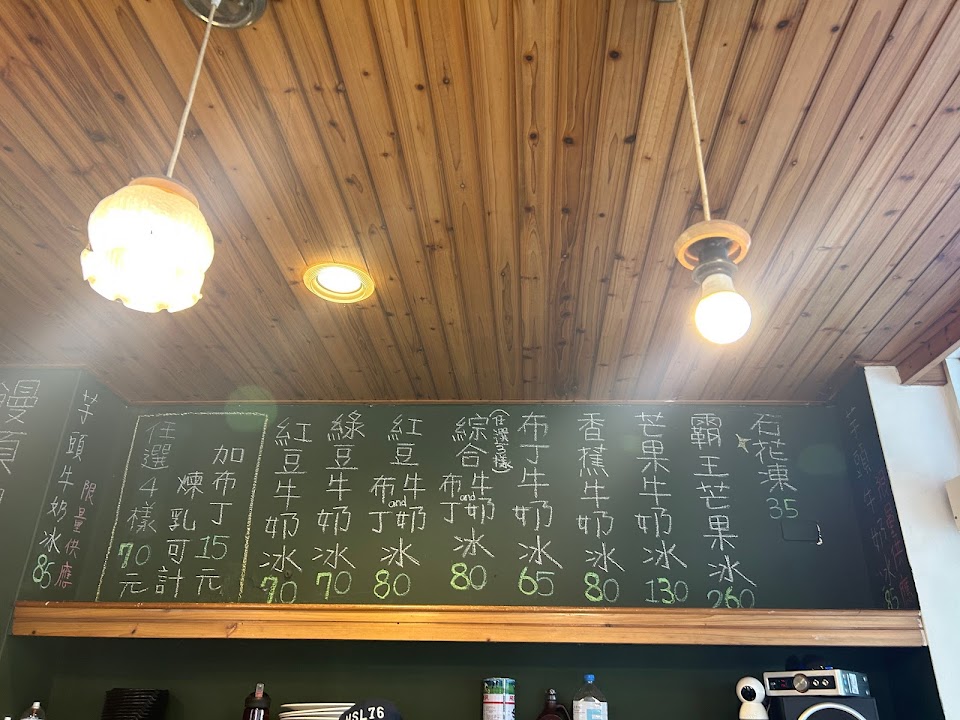 石花凍 35
霸王芒果冰 260
芒果牛奶冰 130
香蕉牛奶冰 80
布丁牛奶冰 65
綜合布丁and牛奶冰 80
紅豆布丁and牛奶冰 80
綠豆牛奶冰 70
紅豆牛奶冰 70
加布丁15元
煉乳可計
任選4樣70元
限量供應
芋頭牛奶冰 85